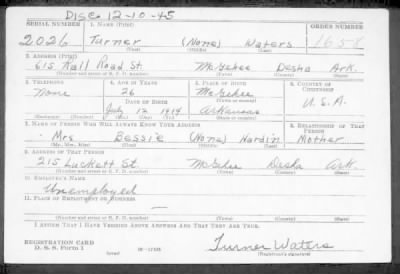 Disc 12-10-45
SERIAL NUMBER 1. NAME (Print) ORDER NUMBER
2026 Turner (None) Waters 1658
(First) (Middle) (Last)
2. ADDRESS (Print)
615 Rail Road St. McGehee Desha Ark.
(Number and street or R. F. D. number) (Town) (County) (State)
3. TELEPHONE 4. AGE IN YEARS 5. PLACE OF BIRTH 6. COUNTRY OF CITIZENSHIP
None 26 McGehee
DATE OF BIRTH U.S.A.
July 12 1914 Arkansas
(Mo.) (Day) (Yr.)
7. NAME OF PERSON WHO WILL ALWAYS KNOW YOUR ADDRESS 8. RELATIONSHIP OF THAT PERSON
Mrs Bessie (None) Hardin Mother
(Mr., Mrs., Miss) (First) (Middle) (Last)
9. ADDRESS OF THAT PERSON
215 Luckett St McGehee Desha Ark.
(Number and street or R. F. D. number) (Town) (County) (State)
10. EMPLOYER'S NAME
Unemployed
11. PLACE OF EMPLOYMENT OR BUSINESS
(Number and street or R. F. D. number) (Town) (County) (State)
I AFFIRM THAT I HAVE VERIFIED ABOVE ANSWERS AND THAT THEY ARE TRUE.
REGISTRATION CARD
D. S. S. Form 1 Turner Waters
(Registrant's signature)